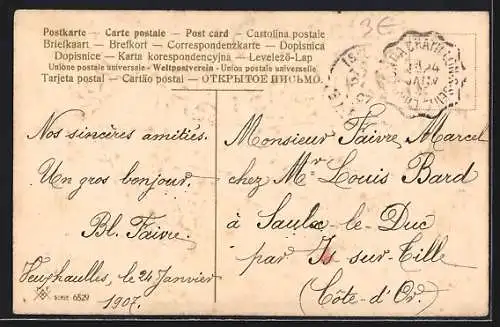 Postkarte - Carte postale - Post card - Cartolina postale
Briefkaart - Brefkort - Correspondenzkarte - Dopisnica
Dopisnice - Karta korespondencyjna - Levelező-Lap
Unione postale universale - Weltpostverein - Union postale universelle
Tarjeta postal - Cartão postal - ОТКРЫТОЕ ПИСЬМО.
3€
Nos sincères amitiés.
Un gros bonjour.
Bl. Faivre.
le 24 Janvier
1907.
SERIE 6529
Monsieur Faivre Marcel
chez Mr Louis Bard
à Saulx-le-Duc
par Is-sur-Tille
(Côte-d'Or.)